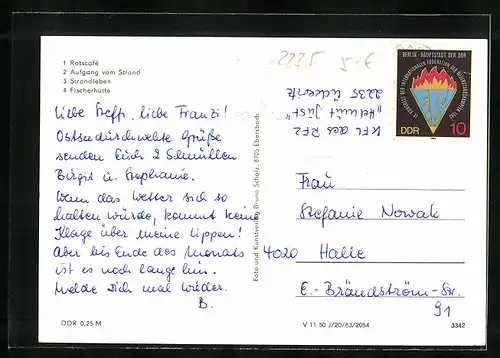 1 Ratscafé
2 Aufgang vom Strand
3 Strandleben
4 Fischerhütte
Liebe Steffi, liebe Franzi!
Ostseedurchwehte Grüße
senden Euch 2 Schmüllen
Birgit u. Stephanie.
Wenn das Wetter sich so
halten würde, kommt keine
Klage über meine Lippen!
Aber bis Ende des Monats
ist es noch lange hin.
Melde Dich mal wieder.
B.
DDR 0,25 M
Foto und Kunstverlag Bruno Scholz, 8705 Ebersbach
2235
5-€
BERLIN · HAUPTSTADT DER DDR
DDR 10
KFL des RFZ
"Helmut Just"
2235 Ückeritz
Frau
Stefanie Nowak
4020 Halle
E.-Brändström-Str.
91
V 11 50 J/20/83/2054
3342